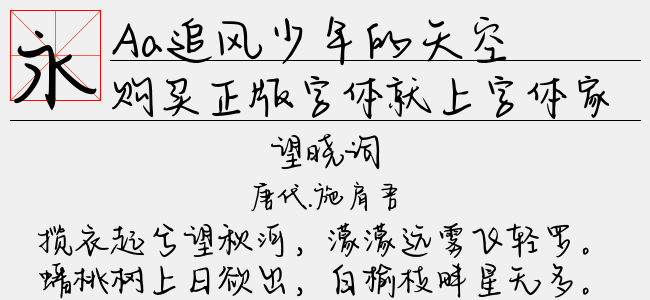 永
Aa追风少年的天空
购买正版字体就上字体家
望晓词
唐代.施肩吾
揽衣起兮望秋河，濛濛远雾飞轻罗。
蟠桃树上日欲出，白榆枝畔星无多。